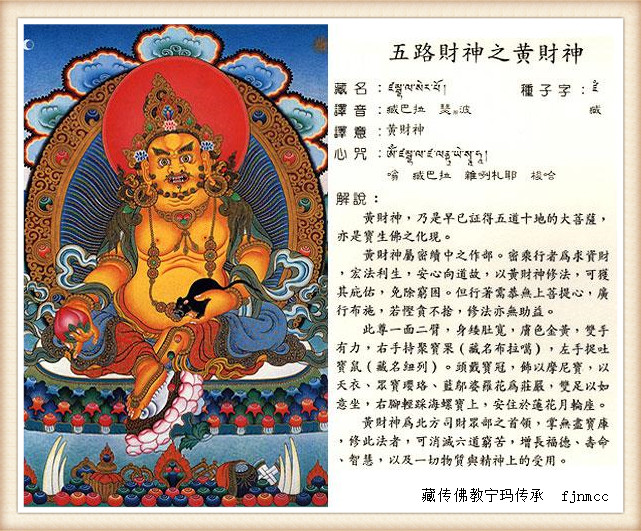 五路財神之黄財神
藏名：ཛམྦྷ་ལ་སེར་པོ།　種子字：ཛཾ
譯音：臧巴拉　瑟波　臧
譯意：黄財神
心咒：
嗡　臧巴拉　雜咧札耶　梭哈
解説：
黄財神，乃是早已証得五道十地的大菩薩，
亦是寶生佛之化現。
黄財神屬密續中之作部。密乘行者爲求資財
，宏法利生，安心向道故，以黄財神修法，可獲
其庇佑，免除窮困。但行著需恭無上菩提心，廣
行布施，若慳貪不捨，修法亦無助益。
此尊一面二臂，身矮肚寬，膚色金黄，雙手
有力，右手持聚寶果（藏名布拉噶），左手捉吐
寶鼠（藏名紐列）。頭戴寶冠，飾以摩尼寶，以
天衣、眾寶瓔珞、藍鄔婆羅花爲莊嚴，雙足以如
意坐，右腳輕踩海螺寶上，安住於蓮花月輪座。
黄財神爲北方司財眾部之首領，掌無盡寶庫
，修此法者，可消滅六道窮苦，增長福德、壽命
、智慧，以及一切物質與精神上的受用。
藏传佛教宁玛传承　fjnmcc